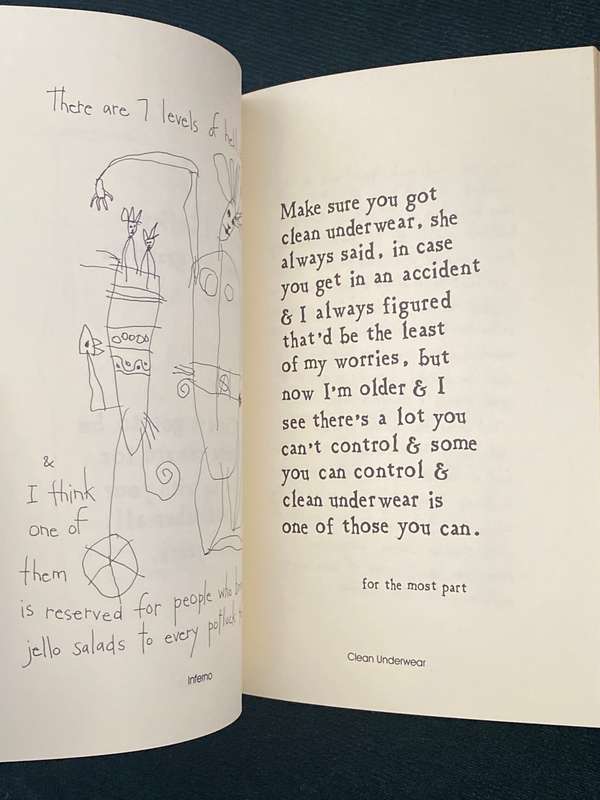 There are 7 levels of hell
&
I think
one of
them
is reserved for people who
jello salads to every potluck
Inferno
Make sure you got
clean underwear, she
always said, in case
you get in an accident
& I always figured
that'd be the least
of my worries, but
now I'm older & I
see there's a lot you
can't control & some
you can control &
clean underwear is
one of those you can.
for the most part
Clean Underwear